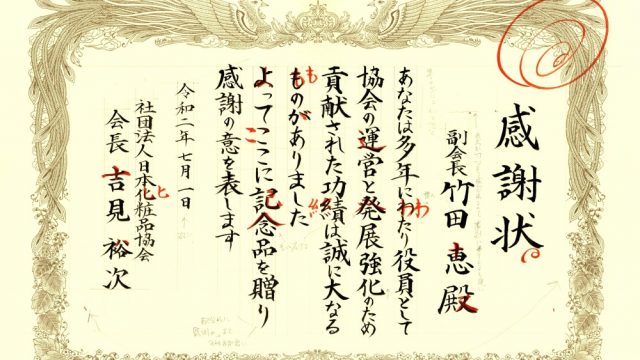 感謝状
副会長 竹田 恵 殿
あなたは多年にわたり役員として
協会の運営と発展強化のため
貢献された功績は誠に大なる
ものがありました
よってここに記念品を贈り
感謝の意を表します
令和二年七月一日
社団法人日本化粧品協会
会長 吉見 裕次
わ
も
糸
こ
ヒ